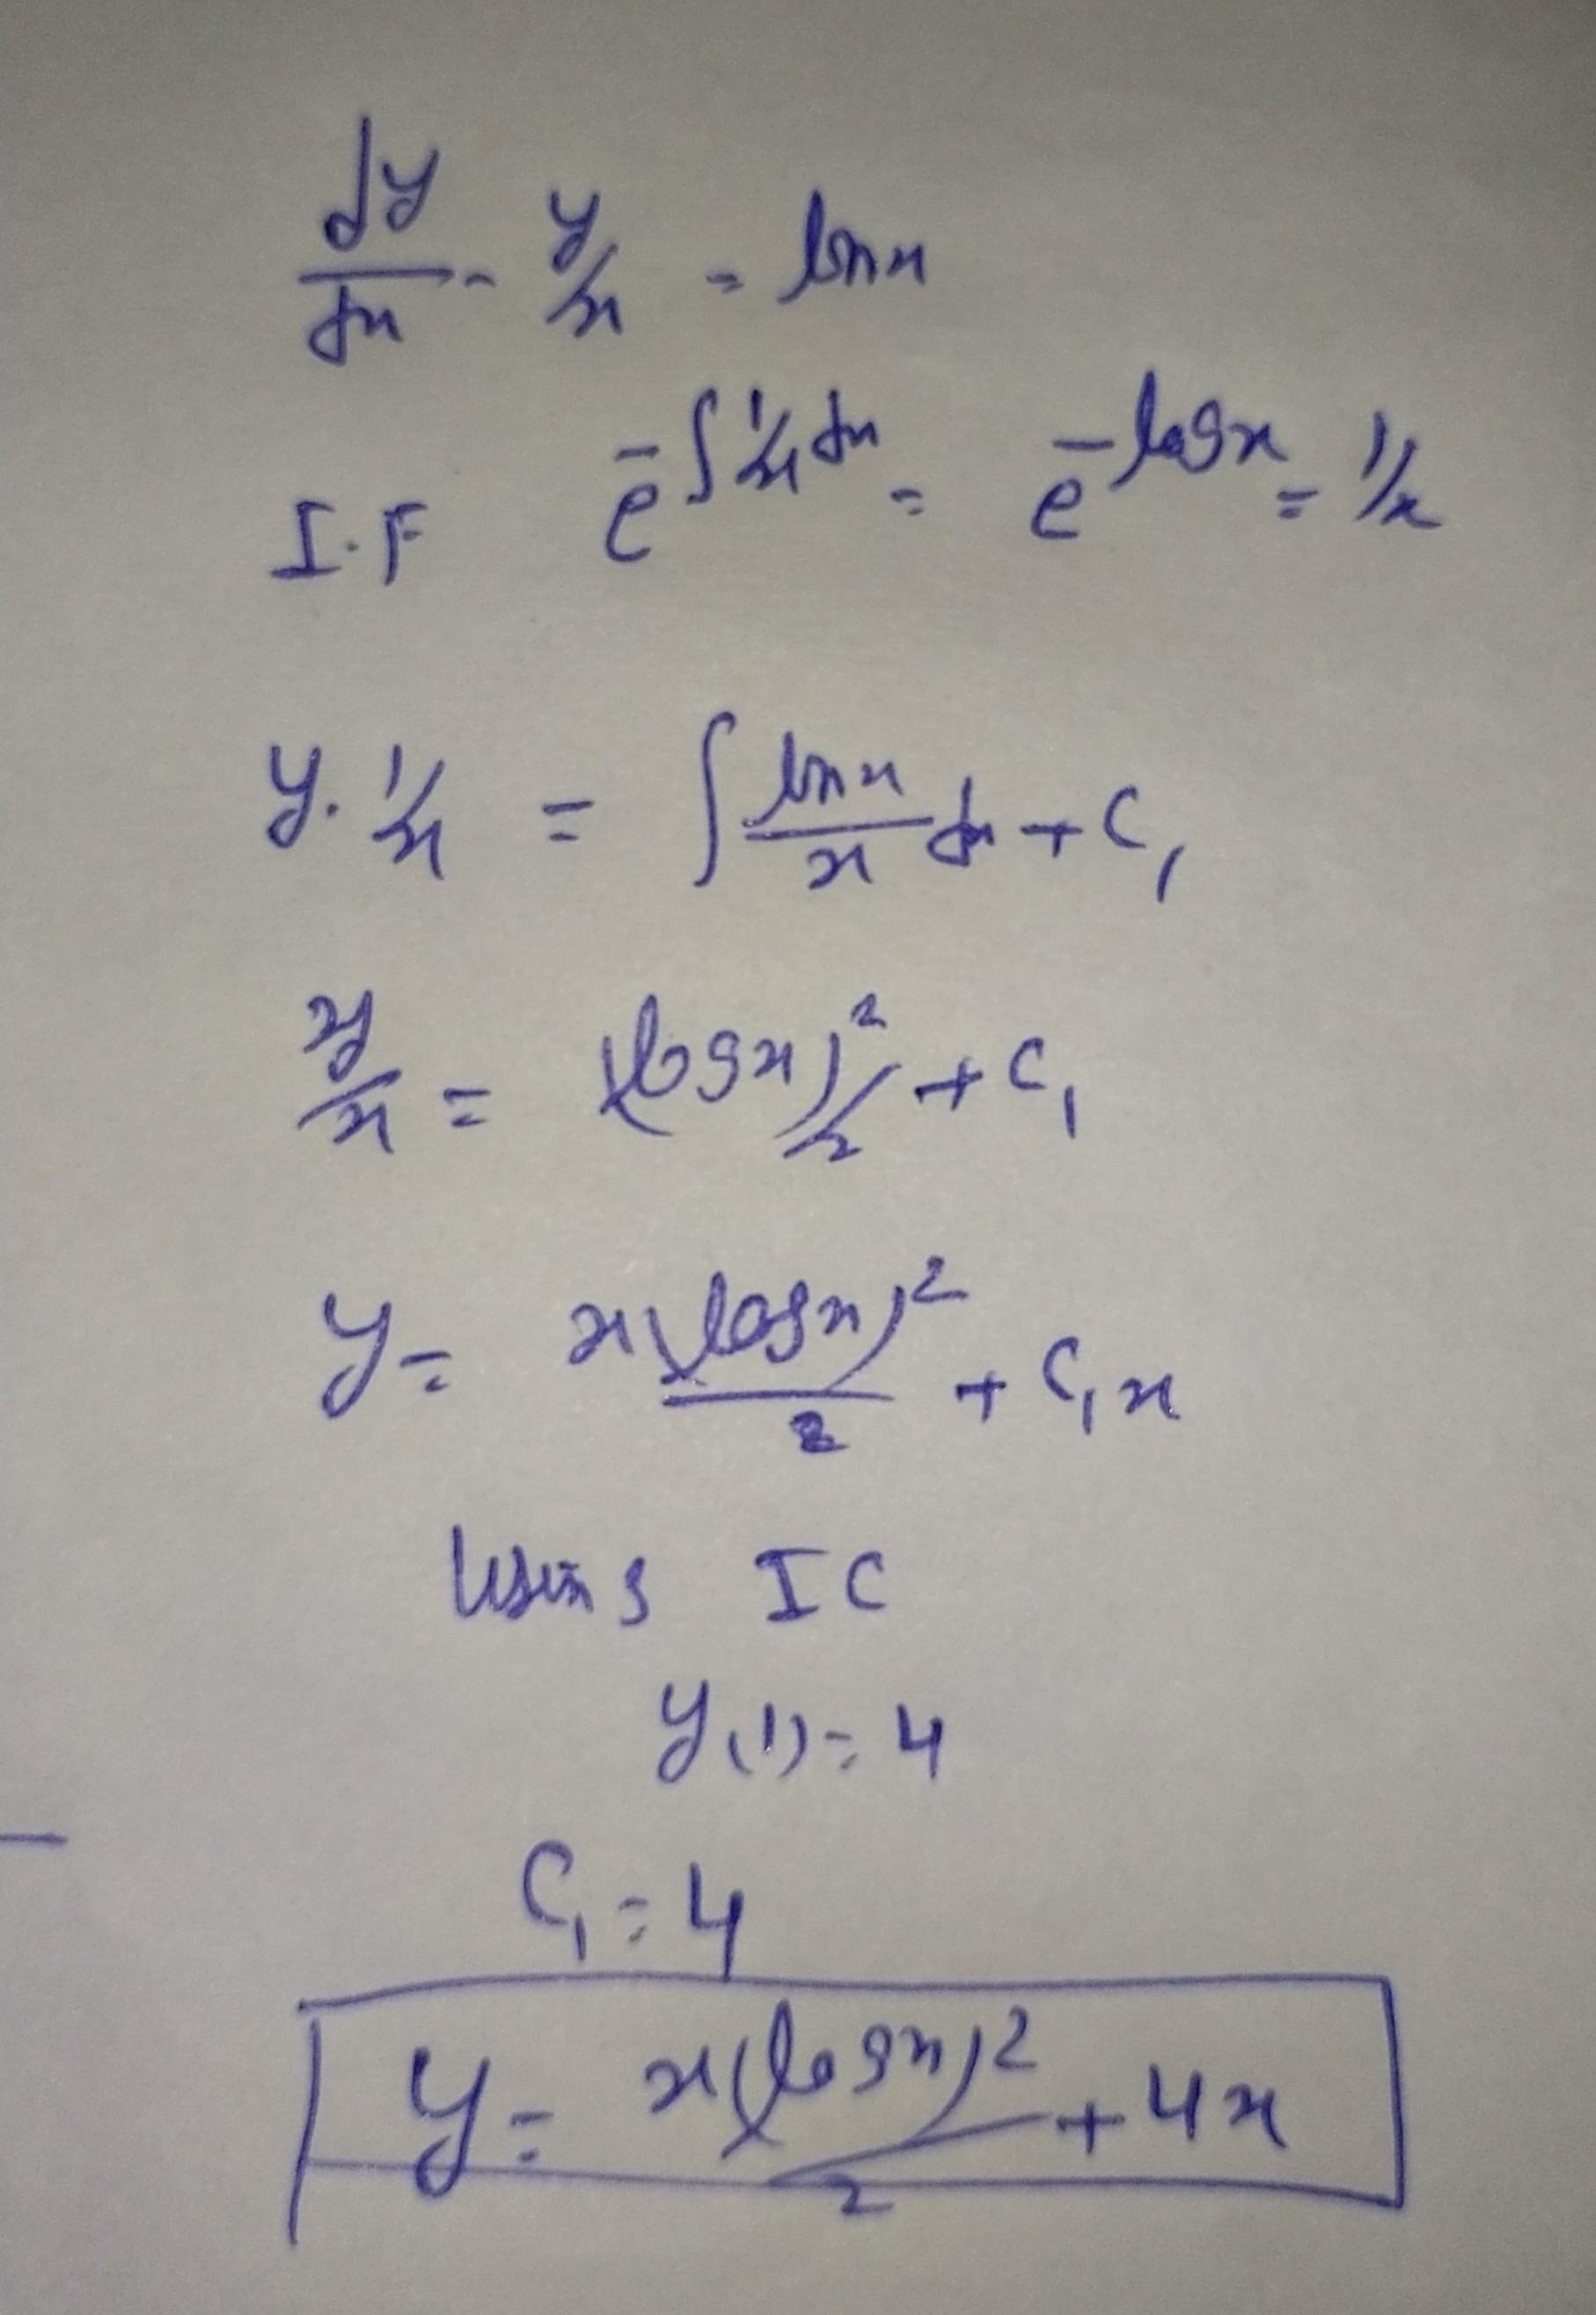 dy/dx - y/x = ln x
I.F e^-∫1/x dx = e^-log x = 1/x
y. 1/x = ∫ ln x/x dx + C₁
y/x = (log x)²/2 + C₁
y = x(log x)²/2 + C₁x
Using IC
y(1) = 4
C₁ = 4
y = x(log x)²/2 + 4x